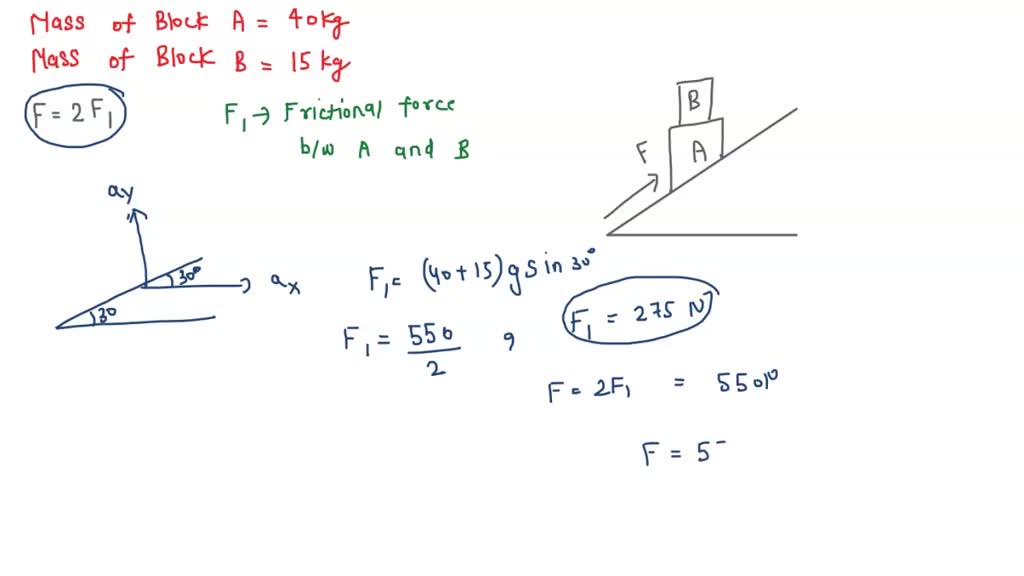 Mass of Block A = 40kg
Mass of Block B = 15kg
F = 2F₁
F₁ → Frictional force
b/w A and B
B
A
F
ay
30°
ax
30
F₁ = (40+15)gsin30°
F₁ = 550/2 ,
F₁ = 275 N
F = 2F₁ = 550
F = 5